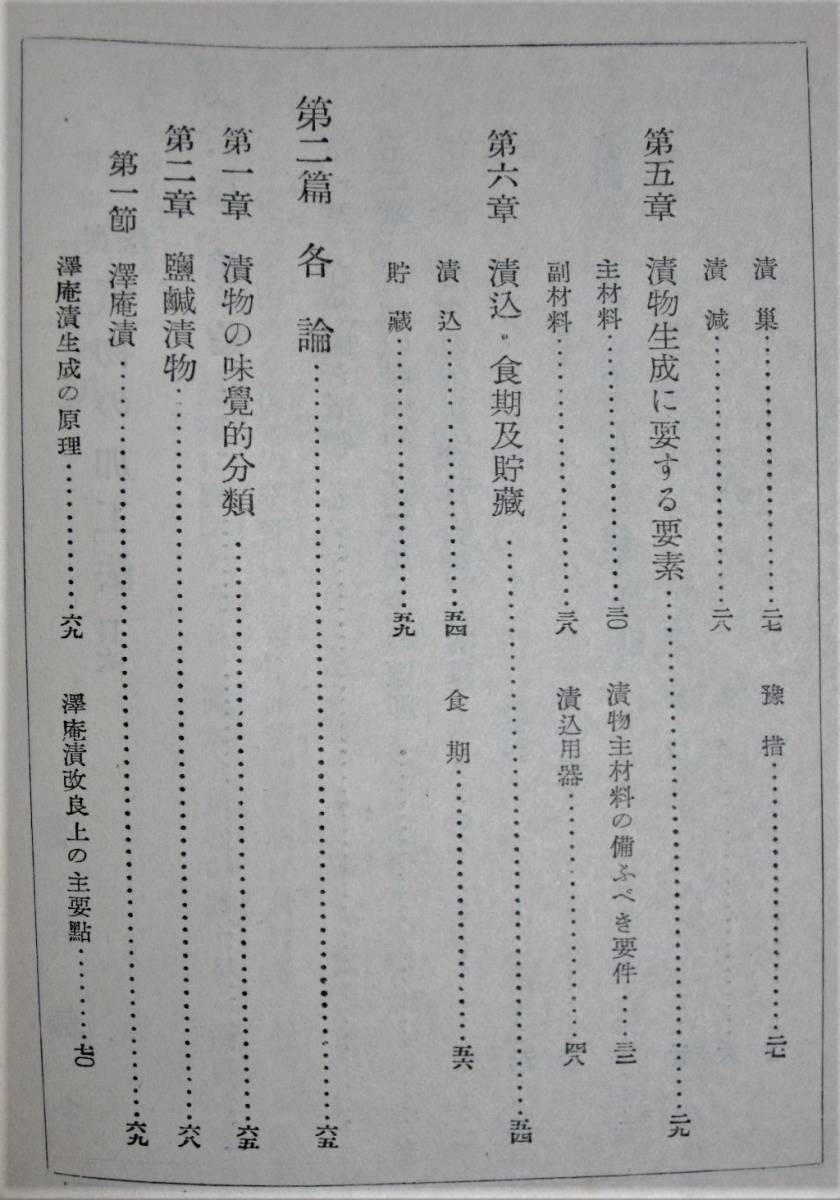 漬巣……二七　豫措……二七
漬減……二八
第五章　漬物生成に要する要素……二九
主材料……三〇　漬物主材料の備ふべき要件……三二
副材料……三八　漬込用器……四八
第六章　漬込。食期及貯藏……五四
漬込……五四　食期……五六
貯藏……五九
第二篇　各論……六五
第一章　漬物の味覺的分類……六五
第二章　鹽鹹漬物……六八
第一節　澤庵漬……六九
澤庵漬生成の原理……六九　澤庵漬改良上の主要點……七〇